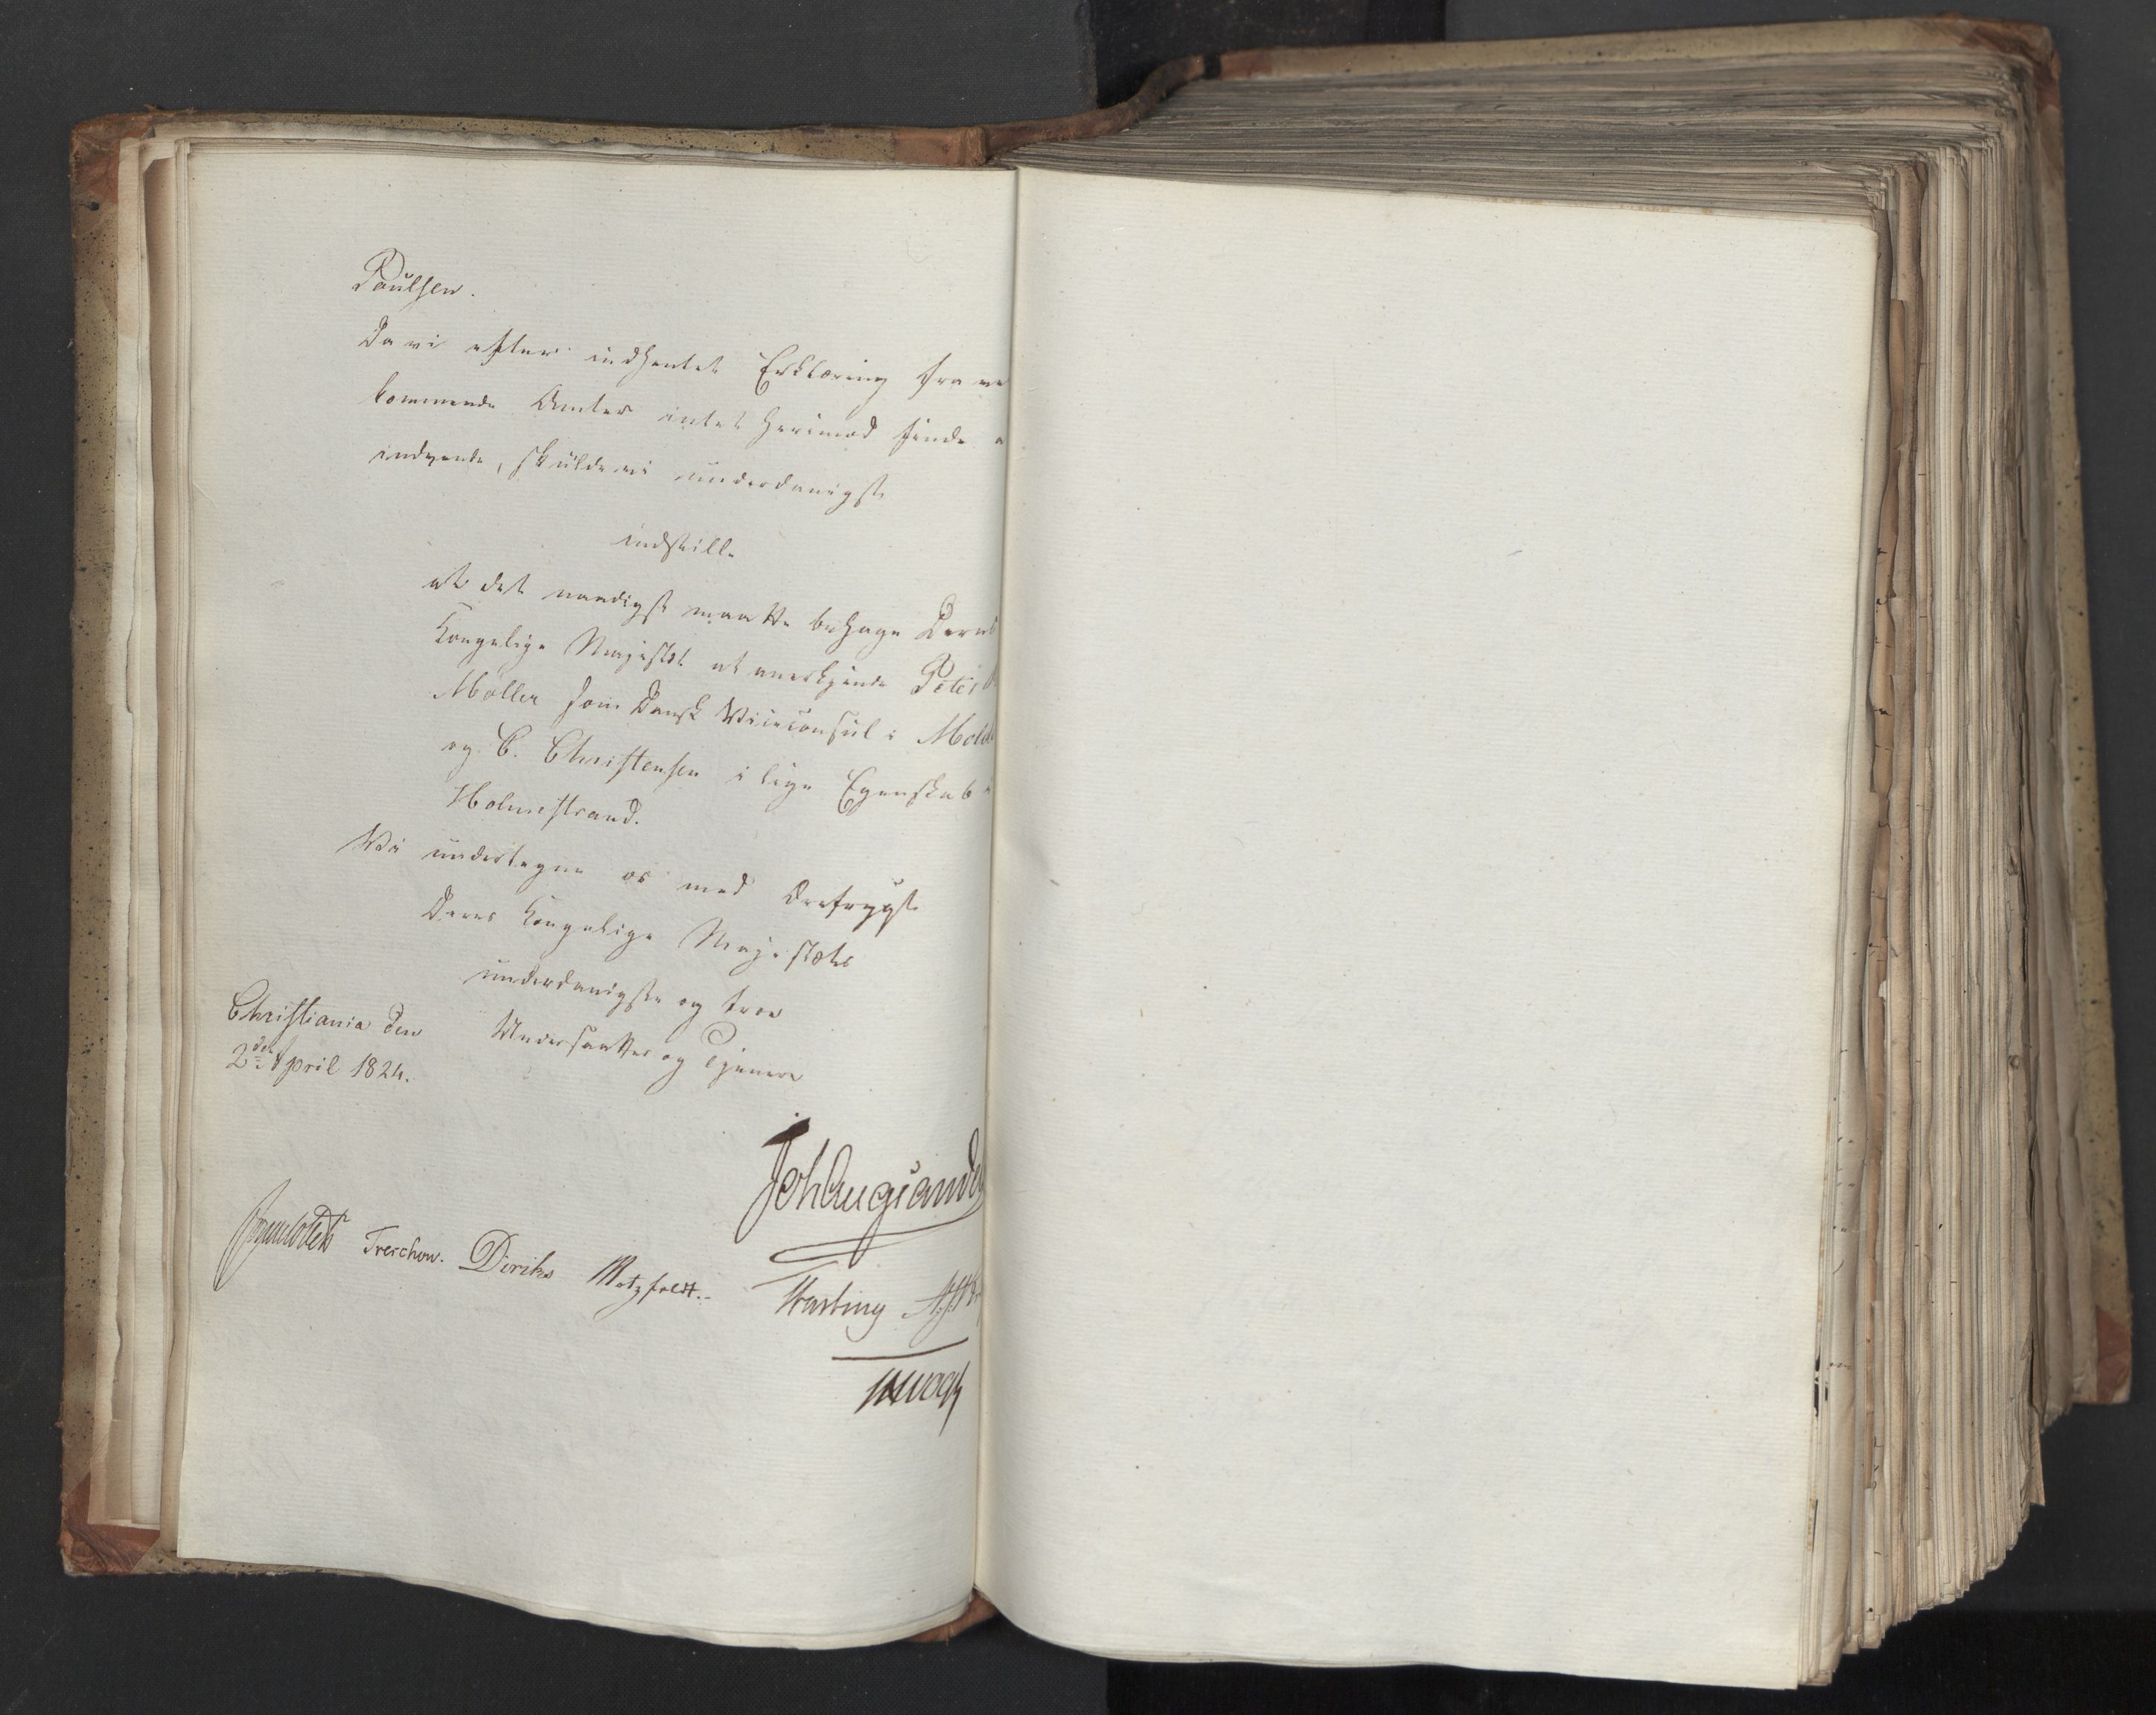 Poulsen.
Da vi efter indhentet Erklæring fra ved
kommende Amter intet herimod finde a
indvende, skulde vi underdanigst
indstille
at det naadigst maatte behage Deres
Kongelige Majestæt at anerkjende Peter
Møller som Dansk Viceconsul i Molde
og C. Christensen i lige Egenskab i
Holmestrand.
Vi undertegne os med Ærefrygt
Deres Kongelige Majestæts
underdanigste og troe
Christiania den Undersaatter og Tjenere
2den April 1824.
Joh Aug Sandels
Treschow. Diriks Motzfeldt. Fasting